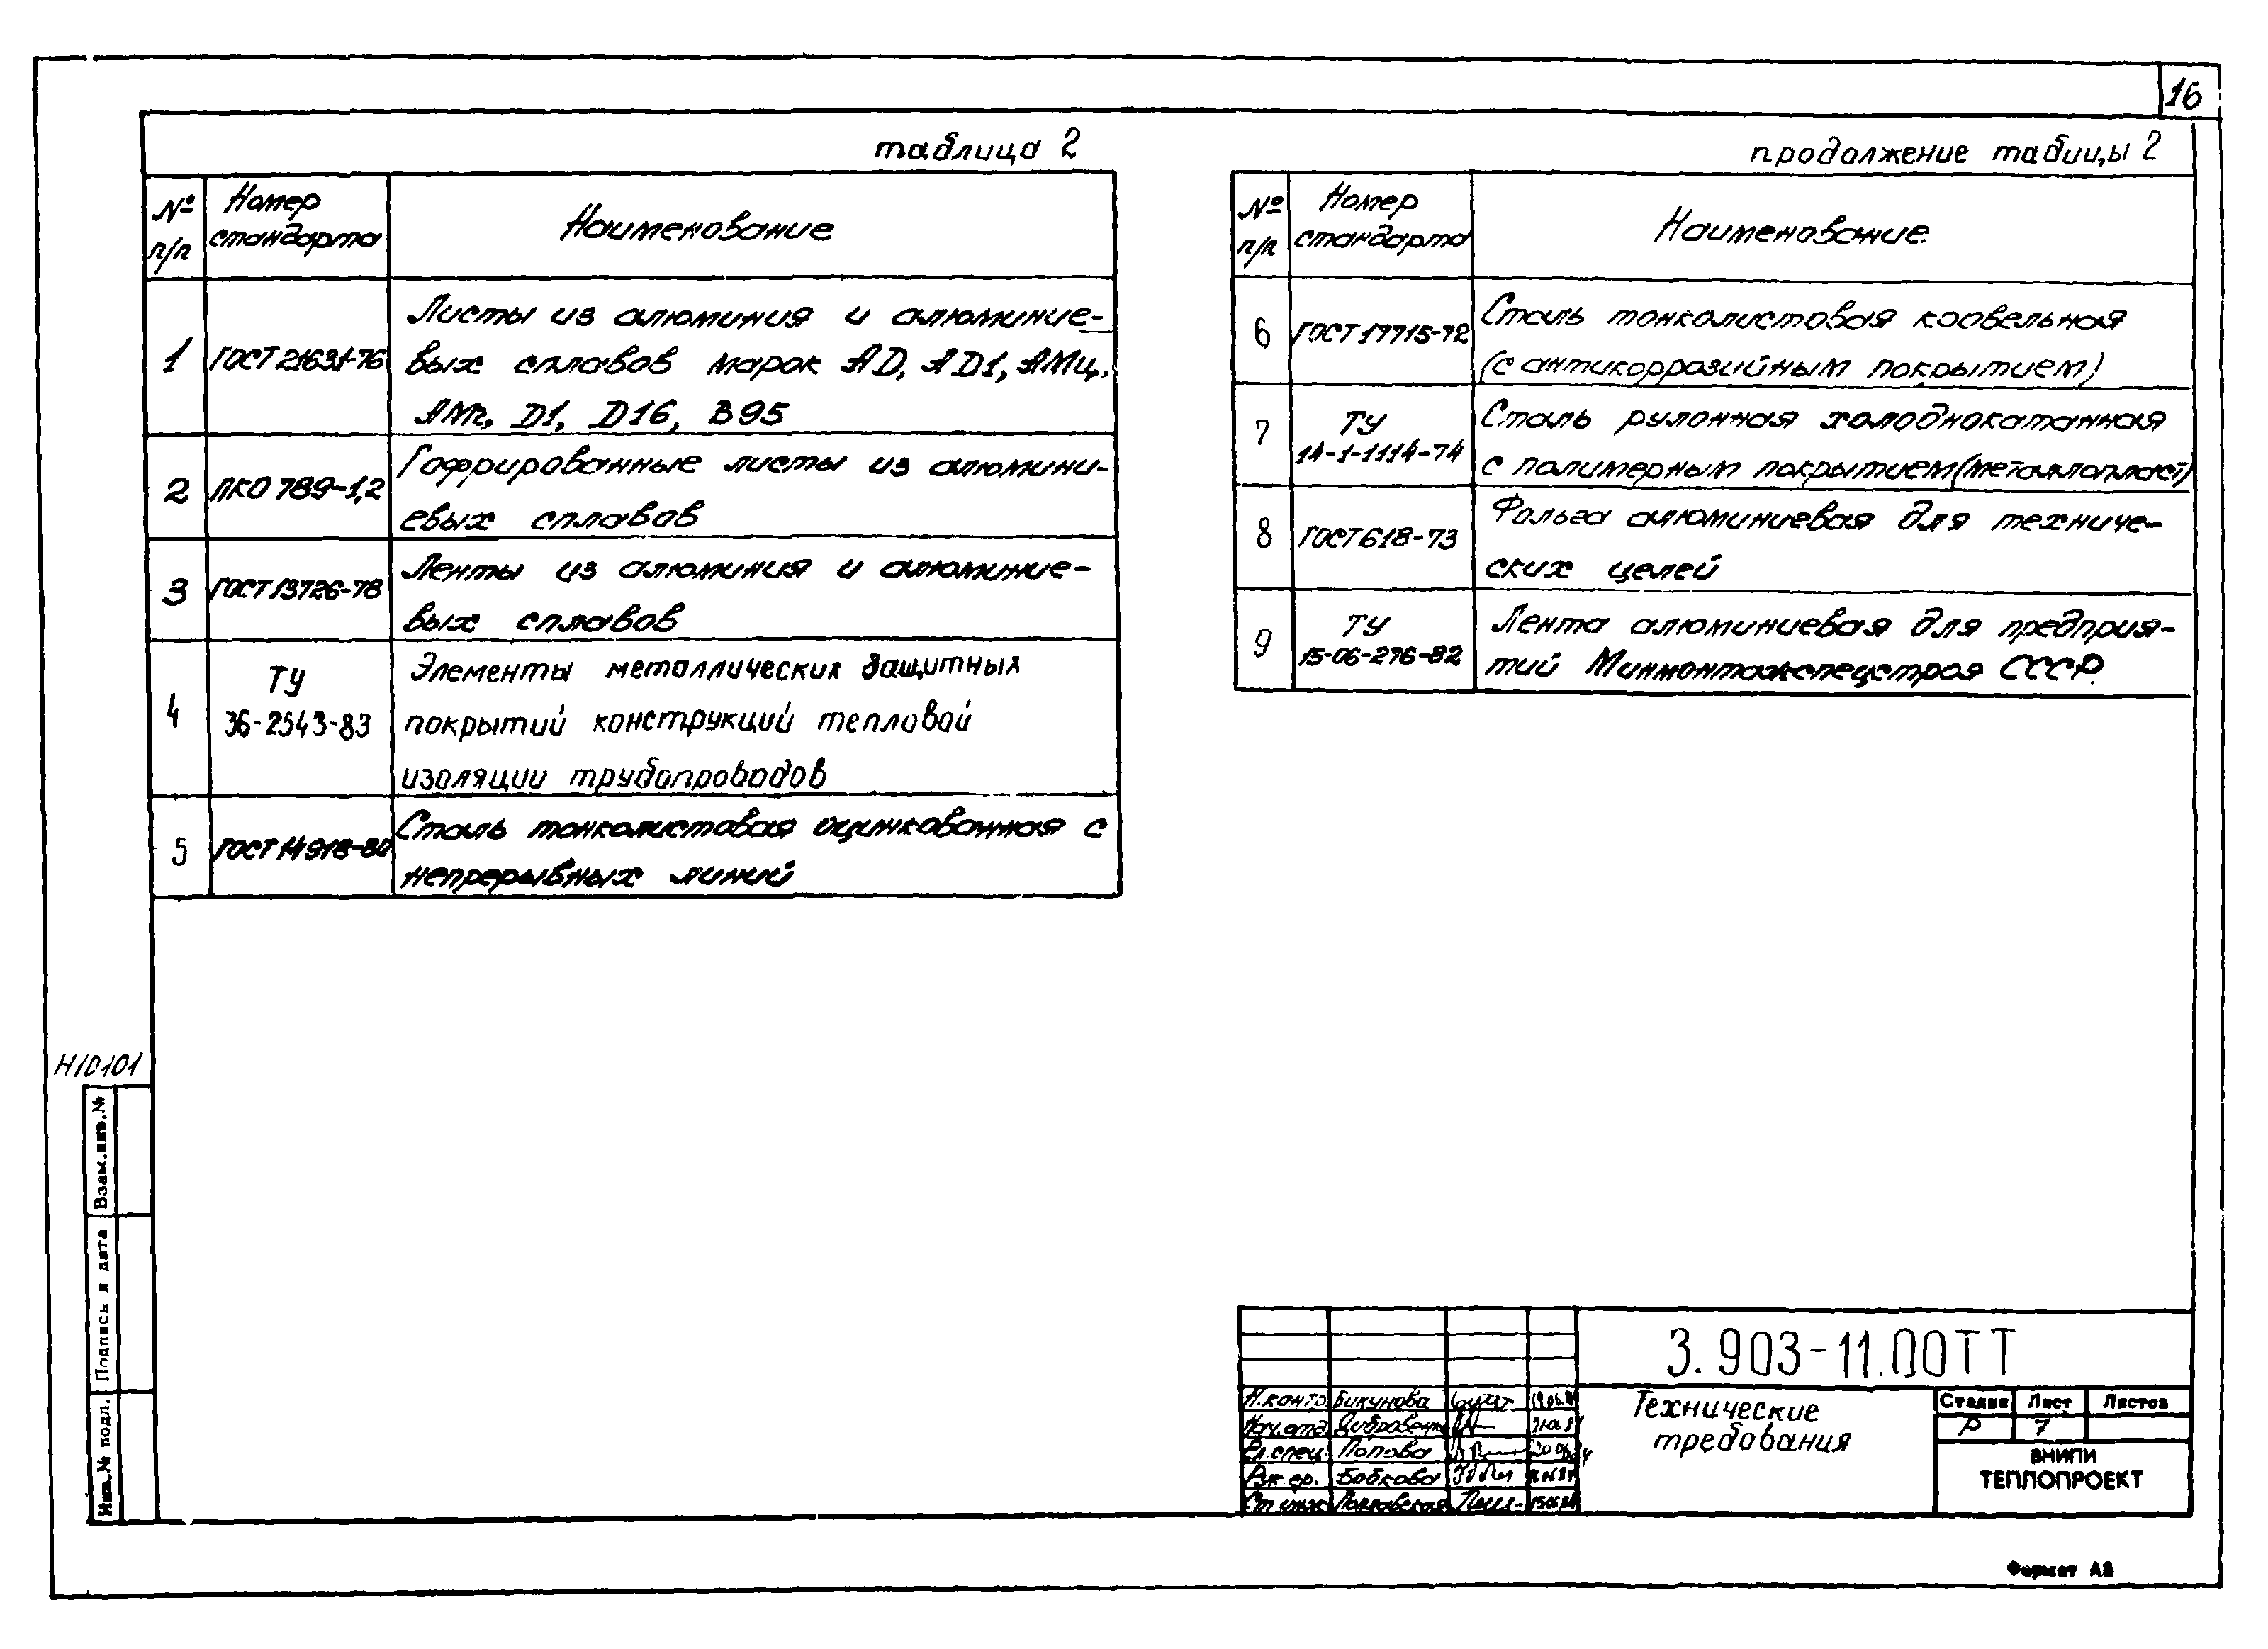 16
таблица 2
№ п/п
Номер стандарта
Наименование
1
ГОСТ 21631-76
Листы из алюминия и алюминие-
вых сплавов марок АD, АD1, АМц,
АМг, D1, D16, В95
2
ПКО 789-1,2
Гофрированные листы из алюмини-
евых сплавов
3
ГОСТ 13726-78
Ленты из алюминия и алюминие-
вых сплавов
4
ТУ
36-2543-83
Элементы металлических защитных
покрытий конструкций тепловой
изоляции трубопроводов
5
ГОСТ 14918-80
Сталь тонколистовая оцинкованная с
непрерывных линий
продолжение табицы 2
№ п/п
Номер стандарта
Наименование
6
ГОСТ 17715-72
Сталь тонколистовая кровельная
(с антикоррозийным покрытием)
7
ТУ
14-1-1114-74
Сталь рулонная холоднокатанная
с полимерным покрытием (металлопласт)
8
ГОСТ 618-73
Фольга алюминиевая для техниче-
ских целей
9
ТУ
15-06-276-82
Лента алюминиевая для предприя-
тий Минмонтажспецстроя СССР
Н10101
Взам.инв.№
Подпись и дата
Инв.№ подл.
3.903-11.00ТТ
Н.контр. Бикунова
Нач.отд.
Гл.спец. Попова
Рук.гр. Бобкова
Ст.инж.
Технические
требования
Стадия Лист Листов
Р 7
ВНИПИ
ТЕПЛОПРОЕКТ
Формат А3